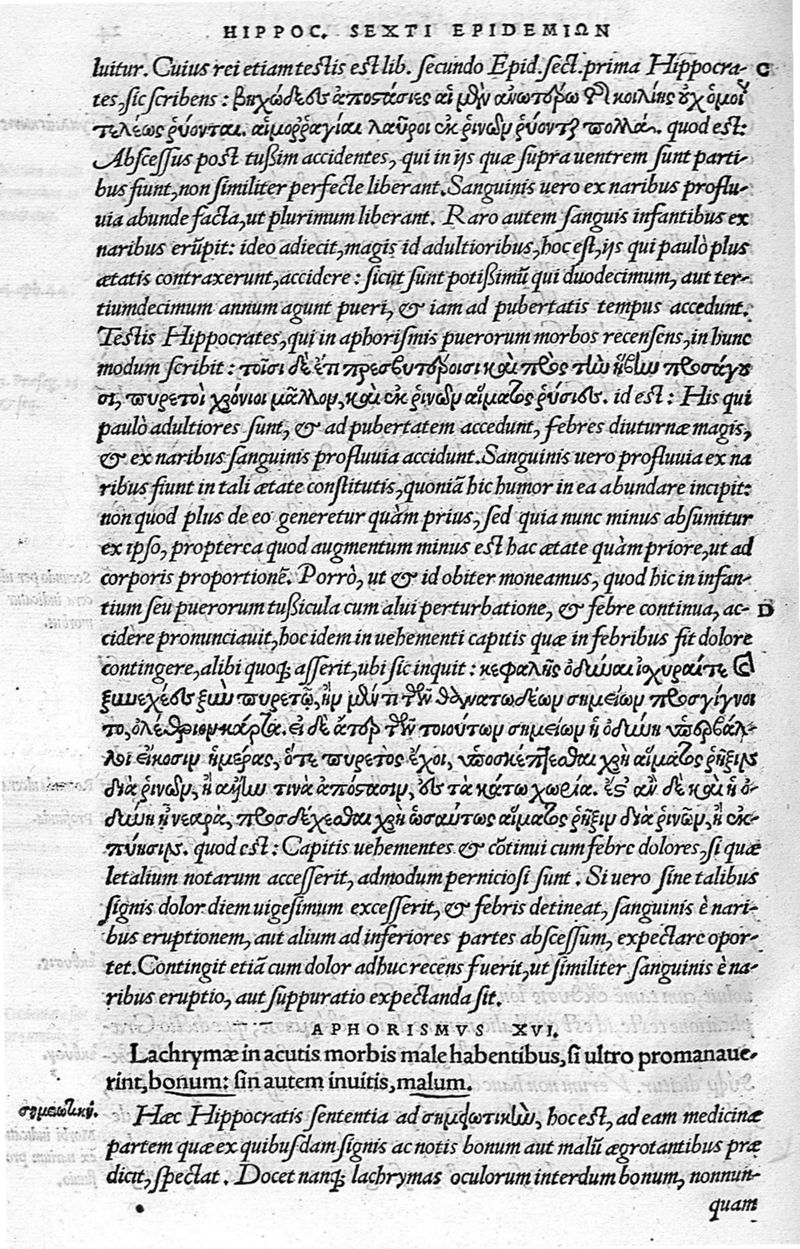 HIPPOC. SEXTI EPIDEMIΩN
luitur. Cuius rei etiam testis est lib. secundo Epid. sect. prima Hippocra- C
tes, sic scribens: βηχώδεες ἀποστάσιες αἱ μὲν ἀνωτέρω τῆς κοιλίης οὐχ ὁμοίως
τελέως ῥύονται. αἱμοῤῥαγίαι λαῦροι ἐκ ῥινῶν ῥύονται πολλά. quod est:
Abscessus post tußim accidentes, qui in ijs quæ supra uentrem sunt parti-
bus fiunt, non similiter perfecte liberant. Sanguinis uero ex naribus proflu-
uia abunde facta, ut plurimum liberant. Raro autem sanguis infantibus ex
naribus erūpit: ideo adiecit, magis id adultioribus, hoc est, ijs qui paulò plus
ætatis contraxerunt, accidere: sicut sunt potißimū qui duodecimum, aut ter-
tiumdecimum annum agunt pueri, & iam ad pubertatis tempus accedunt.
Testis Hippocrates, qui in aphorismis puerorum morbos recensens, in hunc
modum scribit: τοῖσι δὲ ἔτι πρεσβυτέροισι καὶ πρὸς τὴν ἥβην προσάγου
σι, πυρετοὶ χρόνιοι μᾶλλον, καὶ ἐκ ῥινῶν αἵματος ῥύσιες. id est: His qui
paulò adultiores sunt, & ad pubertatem accedunt, febres diuturnæ magis,
& ex naribus sanguinis profluuia accidunt. Sanguinis uero profluuia ex na
ribus fiunt in tali ætate constitutis, quoniā hic humor in ea abundare incipit:
non quod plus de eo generetur quàm prius, sed quia nunc minus absumitur
ex ipso, propterea quod augmentum minus est hac ætate quàm priore, ut ad
corporis proportionē. Porrò, ut & id obiter moneamus, quod hic in infan-
tium seu puerorum tußicula cum alui perturbatione, & febre continua, ac- D
cidere pronunciauit, hoc idem in uehementi capitis quæ in febribus fit dolore
contingere, alibi quoq; asserit, ubi sic inquit: κεφαλῆς ὀδύναι ἰσχυραί τε καὶ
ξυνεχέες ξὺν πυρετῷ, ἢν μέν τι τῶν θανατωδέων σημείων προσγίγνοι
το, ὀλέθριον κάρτα. εἰ δὲ ἄτερ τῶν τοιούτων σημείων ἡ ὀδύνη ὑπερβάλ-
λοι εἴκοσιν ἡμέρας, ὅ τε πυρετὸς ἔχοι, ὑποσκέπτεσθαι χρὴ αἵματος ῥῆξιν
διὰ ῥινῶν, ἢ ἄλλην τινὰ ἀπόστασιν, ἐς τὰ κάτω χωρία. ἔστ' ἂν δὲ καὶ ἡ ὀ-
δύνη ᾖ νεαρὰ, προσδέχεσθαι χρὴ ὡσαύτως αἵματος ῥῆξιν διὰ ῥινῶν, ἢ ἐκ-
πύησιν. quod est: Capitis uehementes & cōtinui cum febre dolores, si quæ
letalium notarum accesserit, admodum perniciosi sunt. Si uero sine talibus
signis dolor diem uigesimum excesserit, & febris detineat, sanguinis è nari-
bus eruptionem, aut alium ad inferiores partes abscessum, expectare opor-
tet. Contingit etiā cum dolor adhuc recens fuerit, ut similiter sanguinis è na-
ribus eruptio, aut suppuratio expectanda sit.
APHORISMVS XVI.
Lachrymæ in acutis morbis male habentibus, si ultro promanaue-
rint, bonum: sin autem inuitis, malum.
σημειωτική. Hæc Hippocratis sententia ad σημειωτικὴν, hoc est, ad eam medicinæ
partem quæ ex quibusdam signis ac notis bonum aut malū ægrotantibus præ
dicit, spectat. Docet nanq; lachrymas oculorum interdum bonum, nonnun-
quam